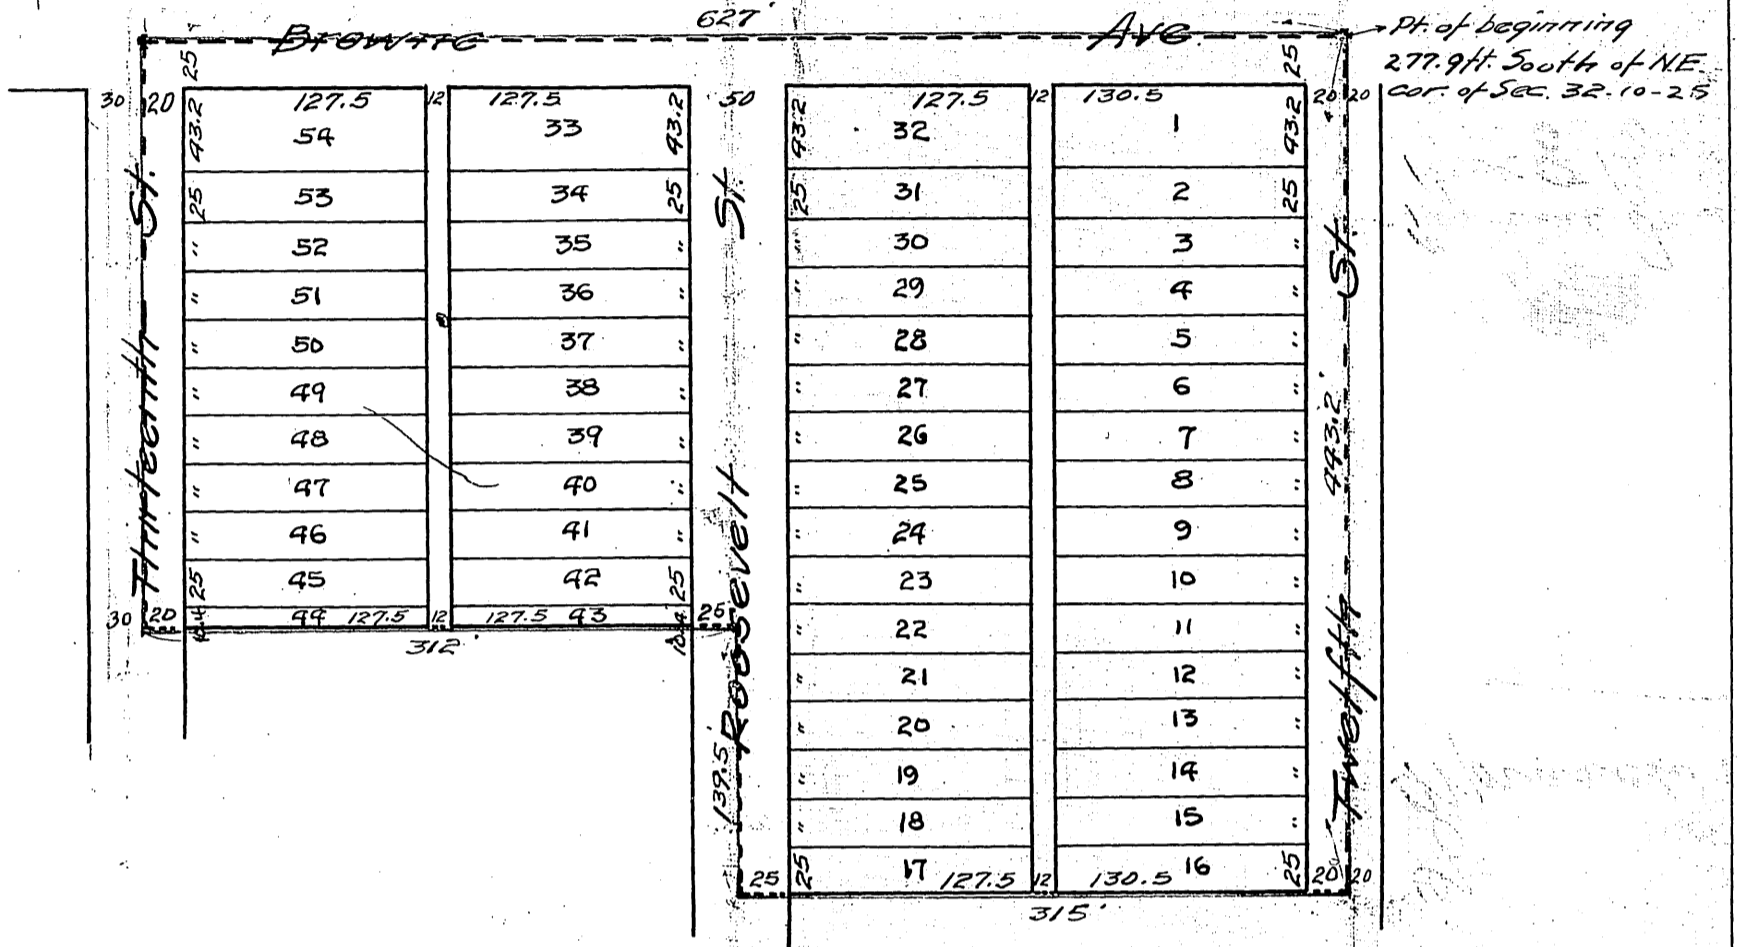 627'
Browne Ave.
Pt. of beginning
277.9ft. South of N.E.
cor. of Sec. 32-10-25
25 25
30 20 127.5 12 127.5 50 127.5 12 130.5 20 20
43.2 54 33 43.2 43.2 32 1 43.2
25 53 34 25 25 31 2 25
" 52 35 " " 30 3 "
" 51 36 " " 29 4 "
" 50 37 " " 28 5 "
" 49 38 " " 27 6 "
" 48 39 " " 26 7 "
" 47 40 " " 25 8 "
" 46 41 " " 24 9 "
25 45 42 25 " 23 10 "
30 20 10.4 44 127.5 12 127.5 43 10.4 25 " 22 11 "
312'
" 21 12 "
" 20 13 "
" 19 14 "
" 18 15 "
25 25 17 127.5 12 130.5 16 25 20 20
315'
Thirteenth St.
Roosevelt St.
139.5'
Twelfth St.
443.2'